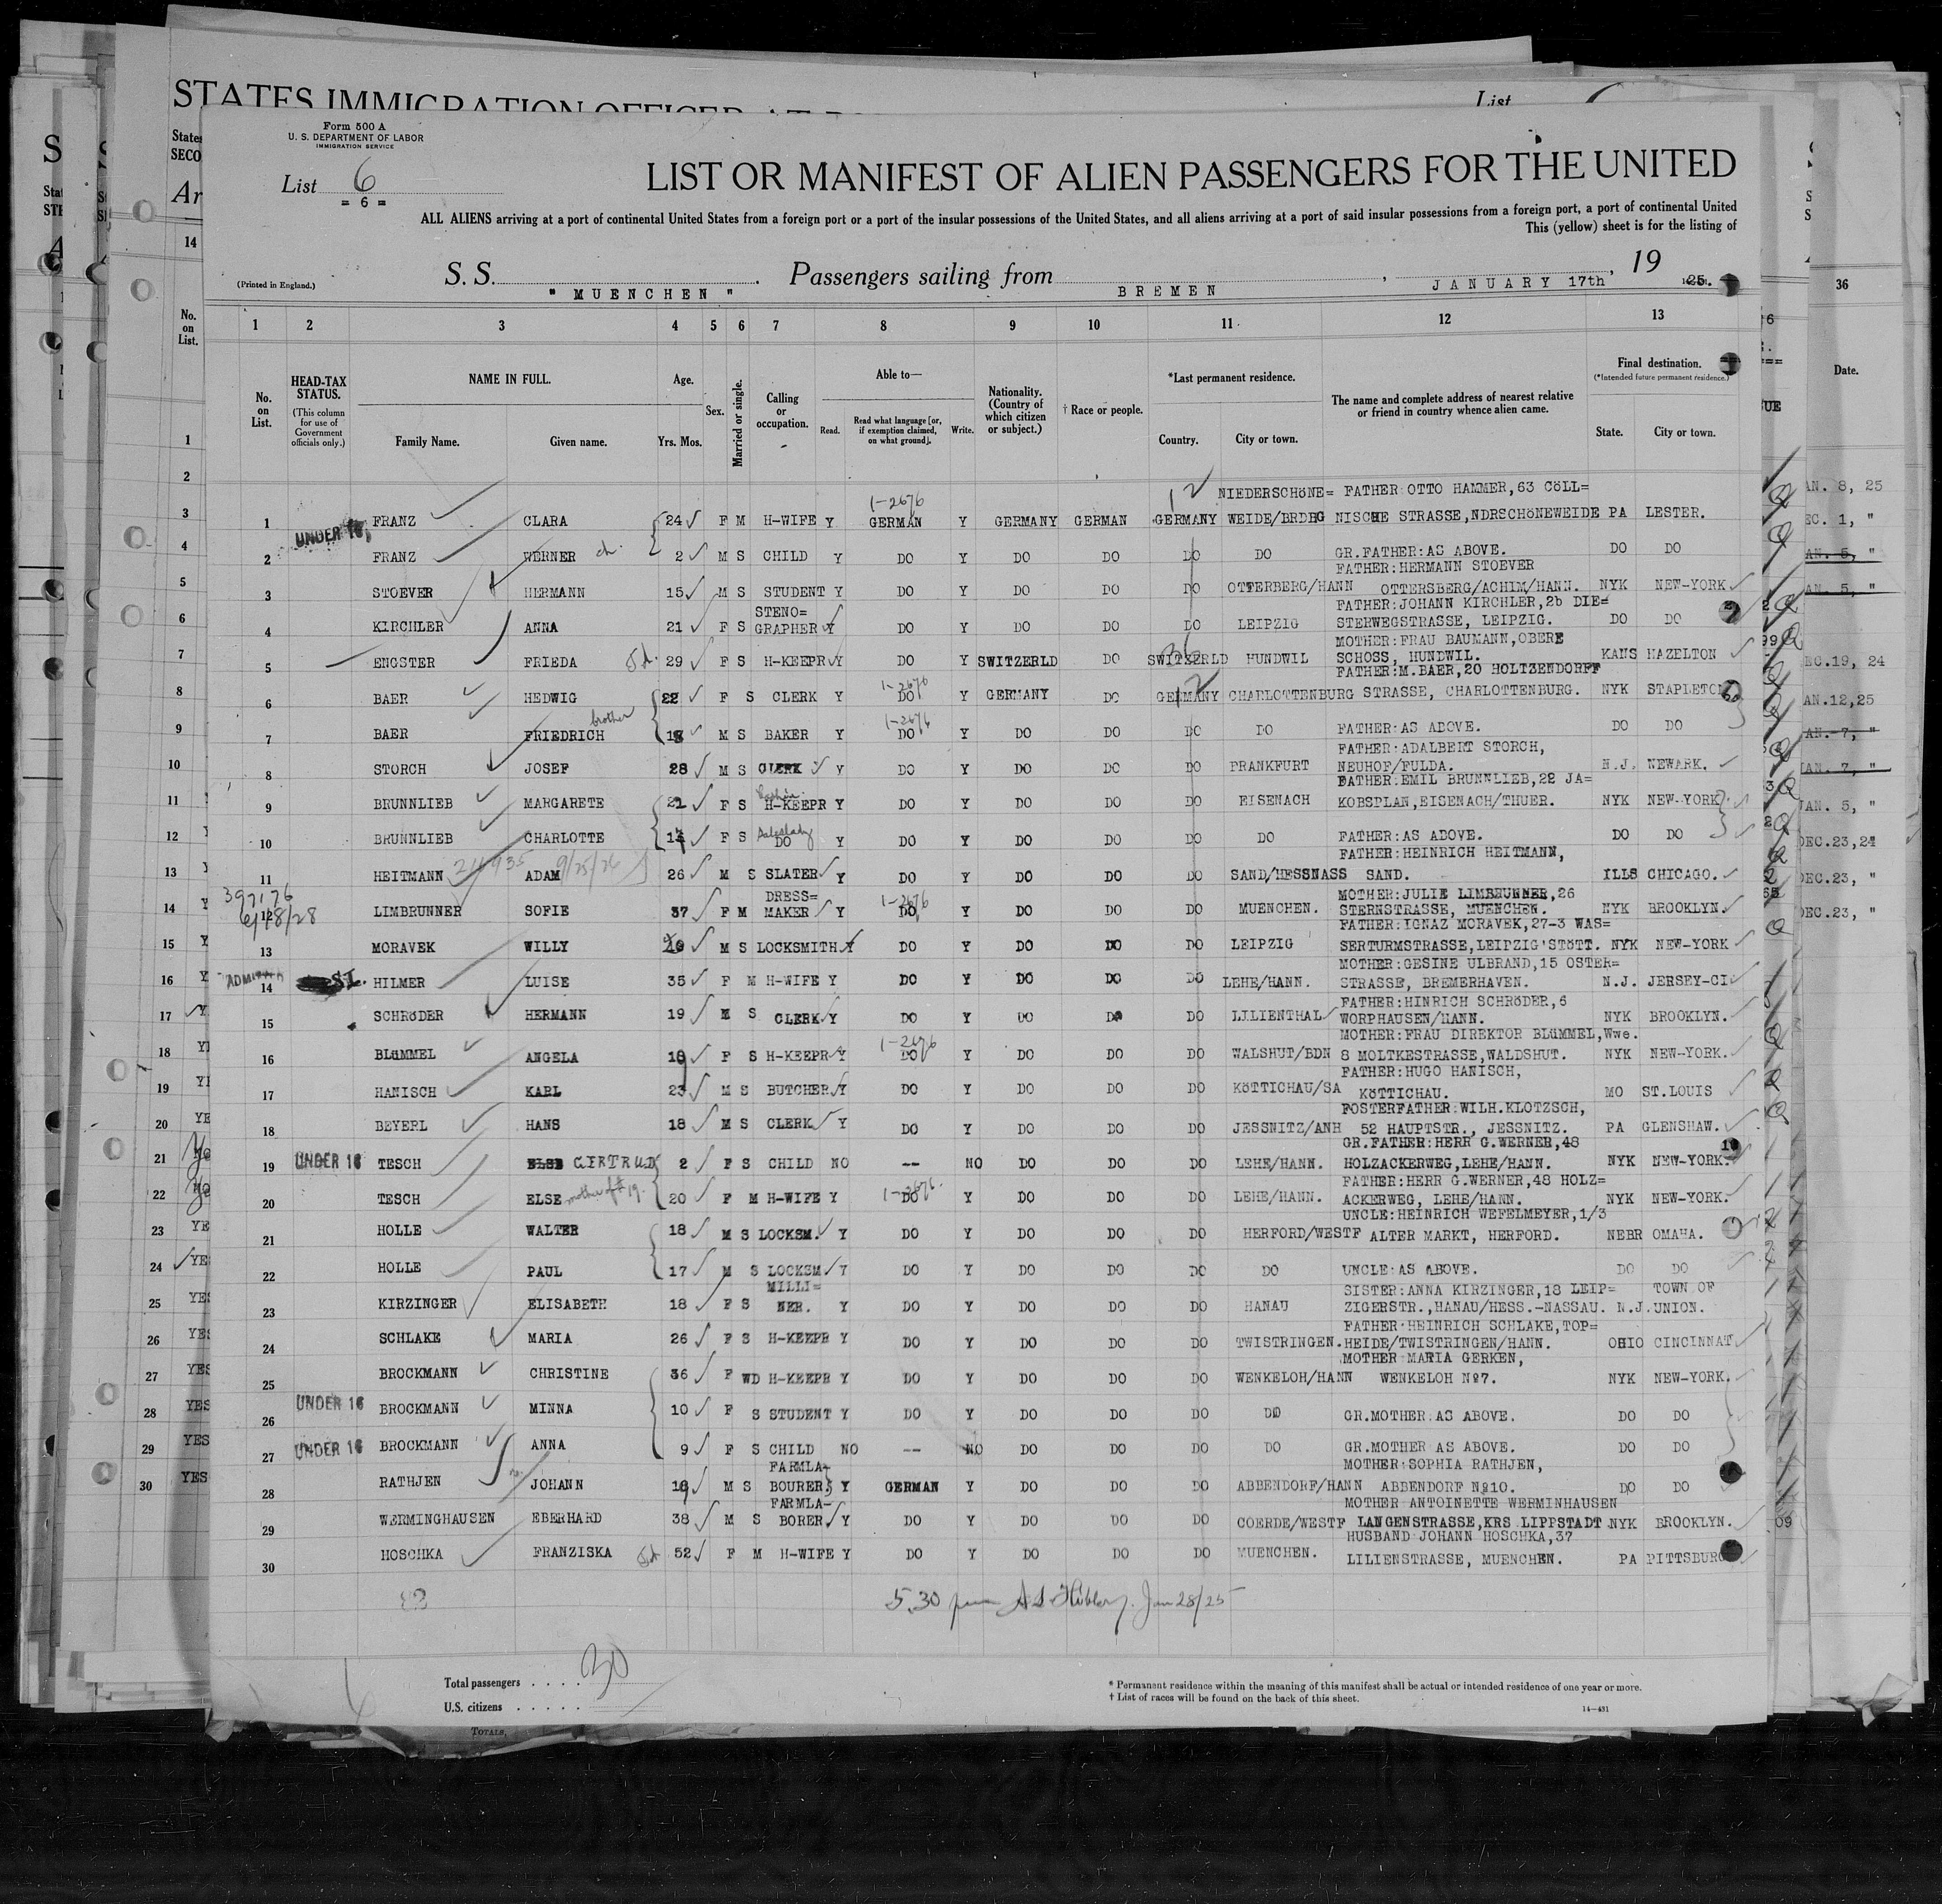 STATES IMMIGRATION OFFICER AT
List
Form 500 A
U. S. DEPARTMENT OF LABOR
IMMIGRATION SERVICE
List 6
= 6 =
LIST OR MANIFEST OF ALIEN PASSENGERS FOR THE UNITED
ALL ALIENS arriving at a port of continental United States from a foreign port or a port of the insular possessions of the United States, and all aliens arriving at a port of said insular possessions from a foreign port, a port of continental United
This (yellow) sheet is for the listing of
(Printed in England.)
S. S. " MUENCHEN " . Passengers sailing from BREMEN , JANUARY 17th , 19 25.
1 2 3 4 5 6 7 8 9 10 11 12 13
No. on List.
HEAD-TAX STATUS. (This column for use of Government officials only.)
NAME IN FULL. Family Name. Given name.
Age. Yrs. Mos.
Sex.
Married or single.
Calling or occupation.
Able to— Read. Read what language [or, if exemption claimed, on what ground]. Write.
Nationality. (Country of which citizen or subject.)
† Race or people.
*Last permanent residence. Country. City or town.
The name and complete address of nearest relative or friend in country whence alien came.
Final destination. (*Intended future permanent residence.) State. City or town.
1-2676 NIEDERSCHÖNE= FATHER OTTO HAMMER,63 CÖLL=
1 UNDER 16 FRANZ CLARA 24 F M H-WIFE Y GERMAN Y GERMANY GERMAN GERMANY WEIDE/BRDBG NISCHE STRASSE,NDRSCHÖNEWEIDE PA LESTER.
2 FRANZ WERNER ch. 2 M S CHILD Y DO Y DO DO DO DO GR.FATHER:AS ABOVE. DO DO
FATHER:HERMANN STOEVER
3 STOEVER HERMANN 15 M S STUDENT Y DO Y DO DO DO OTTERBERG/HANN OTTERSBERG/ACHIM/HANN. NYK NEW-YORK
STENO= FATHER:JOHANN KIRCHLER,2b DIE=
4 KIRCHLER ANNA 21 F S GRAPHER Y DO Y DO DO DO LEIPZIG STERWEGSTRASSE, LEIPZIG. DO DO
MOTHER:FRAU BAUMANN,OBERE
5 ENGSTER FRIEDA 29 F S H-KEEPR Y DO Y SWITZERLD DO SWITZERLD HUNDWIL SCHOSS, HUNDWIL. KANS HAZELTON
1-2676 FATHER:M.BAER,20 HOLTZENDORFF
6 BAER HEDWIG 22 F S CLERK Y DO Y GERMANY DO GERMANY CHARLOTTENBURG STRASSE, CHARLOTTENBURG. NYK STAPLETON
brother 1-2676
7 BAER FRIEDRICH M S BAKER Y DO Y DO DO DO DO FATHER:AS ABOVE. DO DO
FATHER:ADALBERT STORCH,
8 STORCH JOSEF 28 M S CLERK Y DO Y DO DO DO FRANKFURT NEUHOF/FULDA. N.J. NEWARK.
FATHER:EMIL BRUNNLIEB,22 JA=
9 BRUNNLIEB MARGARETE 21 F S H-KEEPR Y DO Y DO DO DO EISENACH KOBSPLAN,EISENACH/THUER. NYK NEW-YORK
Saleslady
10 BRUNNLIEB CHARLOTTE F S DO Y DO Y DO DO DO DO FATHER:AS ABOVE. DO DO
9/25/26 FATHER:HEINRICH HEITMANN,
11 HEITMANN ADAM 26 M S SLATER Y DO Y DO DO DO SAND/HESSNASS SAND. ILLS CHICAGO.
397176 DRESS= 1-2676 MOTHER:JULIE LIMBRUNNER,26
12 6/18/28 LIMBRUNNER SOFIE 37 F M MAKER Y DO Y DO DO DO MUENCHEN. STERNSTRASSE, MUENCHEN. NYK BROOKLYN.
FATHER:IGNAZ MORAVEK,27-3 WAS=
13 MORAVEK WILLY M S LOCKSMITH Y DO Y DO DO DO LEIPZIG SERTURMSTRASSE,LEIPZIG'STÖTT. NYK NEW-YORK
MOTHER:GESINE ULBRAND,15 OSTER=
14 ADMITTED S.I. HILMER LUISE 35 F M H-WIFE Y DO Y DO DO DO LEHE/HANN. STRASSE, BREMERHAVEN. N.J. JERSEY-CI
FATHER:HINRICH SCHRÖDER,6
15 SCHRÖDER HERMANN 19 M S CLERK Y DO Y DO DO DO LILIENTHAL WORPHAUSEN/HANN. NYK BROOKLYN.
1-2676 MOTHER:FRAU DIREKTOR BLÜMMEL,Wwe.
16 BLÜMMEL ANGELA 19 F S H-KEEPR Y DO Y DO DO DO WALSHUT/BDN 8 MOLTKESTRASSE,WALDSHUT. NYK NEW-YORK.
FATHER:HUGO HANISCH,
17 HANISCH KARL 23 M S BUTCHER Y DO Y DO DO DO KÖTTICHAU/SA KÖTTICHAU. MO ST.LOUIS
FOSTERFATHER:WILH.KLOTZSCH,
18 BEYERL HANS 18 M S CLERK Y DO Y DO DO DO JESSNITZ/ANH 52 HAUPTSTR., JESSNITZ. PA GLENSHAW.
GR.FATHER:HERR G.WERNER,48
19 UNDER 16 TESCH ELSE GERTRUD 2 F S CHILD NO -- NO DO DO DO LEHE/HANN. HOLZACKERWEG,LEHE/HANN. NYK NEW-YORK.
FATHER:HERR G.WERNER,48 HOLZ=
20 TESCH ELSE mother of # 19. 20 F M H-WIFE Y 1-2676. DO Y DO DO DO LEHE/HANN. ACKERWEG, LEHE/HANN. NYK NEW-YORK.
UNCLE:HEINRICH WEFELMEYER,1/3
21 HOLLE WALTER 18 M S LOCKSM. Y DO Y DO DO DO HERFORD/WESTF ALTER MARKT, HERFORD. NEBR OMAHA.
22 HOLLE PAUL 17 M S LOCKSM Y DO Y DO DO DO DO UNCLE:AS ABOVE. DO DO
MILLI= SISTER:ANNA KIRZINGER,18 LEIP= TOWN OF
23 KIRZINGER ELISABETH 18 F S NER. Y DO Y DO DO DO HANAU ZIGERSTR.,HANAU/HESS.-NASSAU. N.J. UNION.
FATHER:HEINRICH SCHLAKE,TOP=
24 SCHLAKE MARIA 26 F S H-KEEPR Y DO Y DO DO DO TWISTRINGEN. HEIDE/TWISTRINGEN/HANN. OHIO CINCINNAT
MOTHER MARIA GERKEN,
25 BROCKMANN CHRISTINE 36 F WD H-KEEPR Y DO Y DO DO DO WENKELOH/HANN WENKELOH Nº7. NYK NEW-YORK.
26 UNDER 16 BROCKMANN MINNA 10 F S STUDENT Y DO Y DO DO DO DO GR.MOTHER:AS ABOVE. DO DO
27 UNDER 16 BROCKMANN ANNA 9 F S CHILD NO -- NO DO DO DO DO GR.MOTHER AS ABOVE. DO DO
FARMLA- MOTHER:SOPHIA RATHJEN,
28 RATHJEN JOHANN M S BOURER Y GERMAN Y DO DO DO ABBENDORF/HANN ABBENDORF Nº10. DO DO
FARMLA- MOTHER ANTOINETTE WERMINHAUSEN
29 WERMINGHAUSEN EBERHARD 38 M S BORER Y DO Y DO DO DO COERDE/WESTF LANGENSTRASSE,KRS LIPPSTADT NYK BROOKLYN.
HUSBAND JOHANN HOSCHKA,37
30 HOSCHKA FRANZISKA 52 F M H-WIFE Y DO Y DO DO DO MUENCHEN. LILIENSTRASSE, MUENCHEN. PA PITTSBURG
5.30 pm Jan 28/25
Total passengers . . . . 30
U.S. citizens . . . . .
* Permanent residence within the meaning of this manifest shall be actual or intended residence of one year or more.
† List of races will be found on the back of this sheet.
14—431
TOTALS,
36
Date.
AN. 8, 25
EC. 1, "
AN. 5, "
AN. 5, "
EC.19, 24
AN.12,25
AN.-7, "
AN. 7, "
AN. 5, "
DEC.23,24
DEC.23, "
DEC.23, "